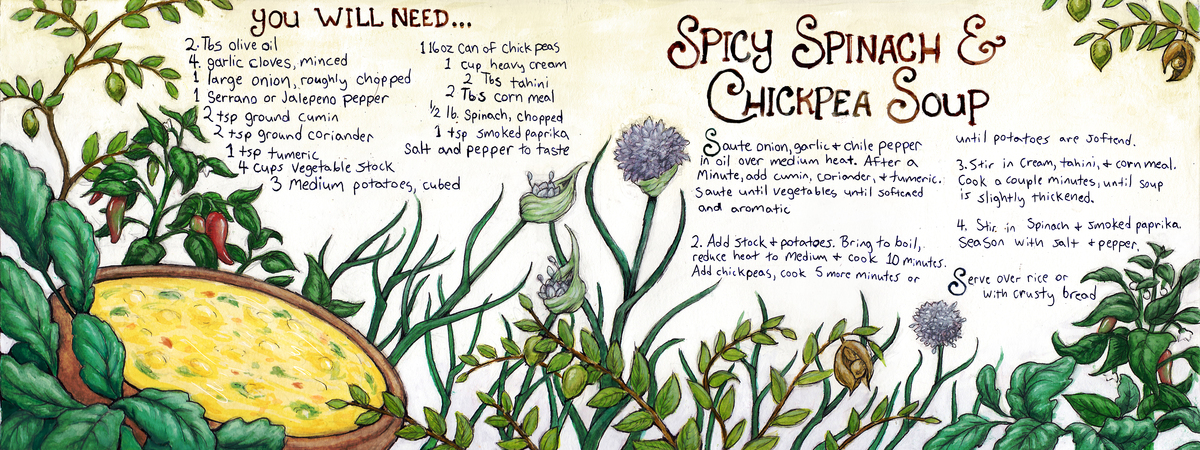 YOU WILL NEED...
2 Tbs olive oil
4 garlic cloves, minced
1 large onion, roughly chopped
1 Serrano or Jalepeno pepper
2 tsp ground cumin
2 tsp ground coriander
1 tsp tumeric
4 cups vegetable stock
3 Medium potatoes, cubed
1 16oz can of chick peas
1 cup heavy cream
2 Tbs tahini
2 Tbs corn meal
1/2 lb. Spinach, chopped
1 tsp smoked paprika
Salt and pepper to taste
SPICY SPINACH &
CHICKPEA SOUP
Saute onion, garlic + chile pepper
in oil over medium heat. After a
Minute, add cumin, coriander, + tumeric.
Saute until vegetables until softened
and aromatic
2. Add stock + potatoes. Bring to boil,
reduce heat to Medium + cook 10 minutes.
Add chickpeas, cook 5 more minutes or
until potatoes are softend.
3. Stir in cream, tahini, + corn meal.
Cook a couple minutes, until soup
is slightly thickened.
4. Stir in Spinach + smoked paprika.
Season with salt + pepper.
Serve over rice or
with crusty bread